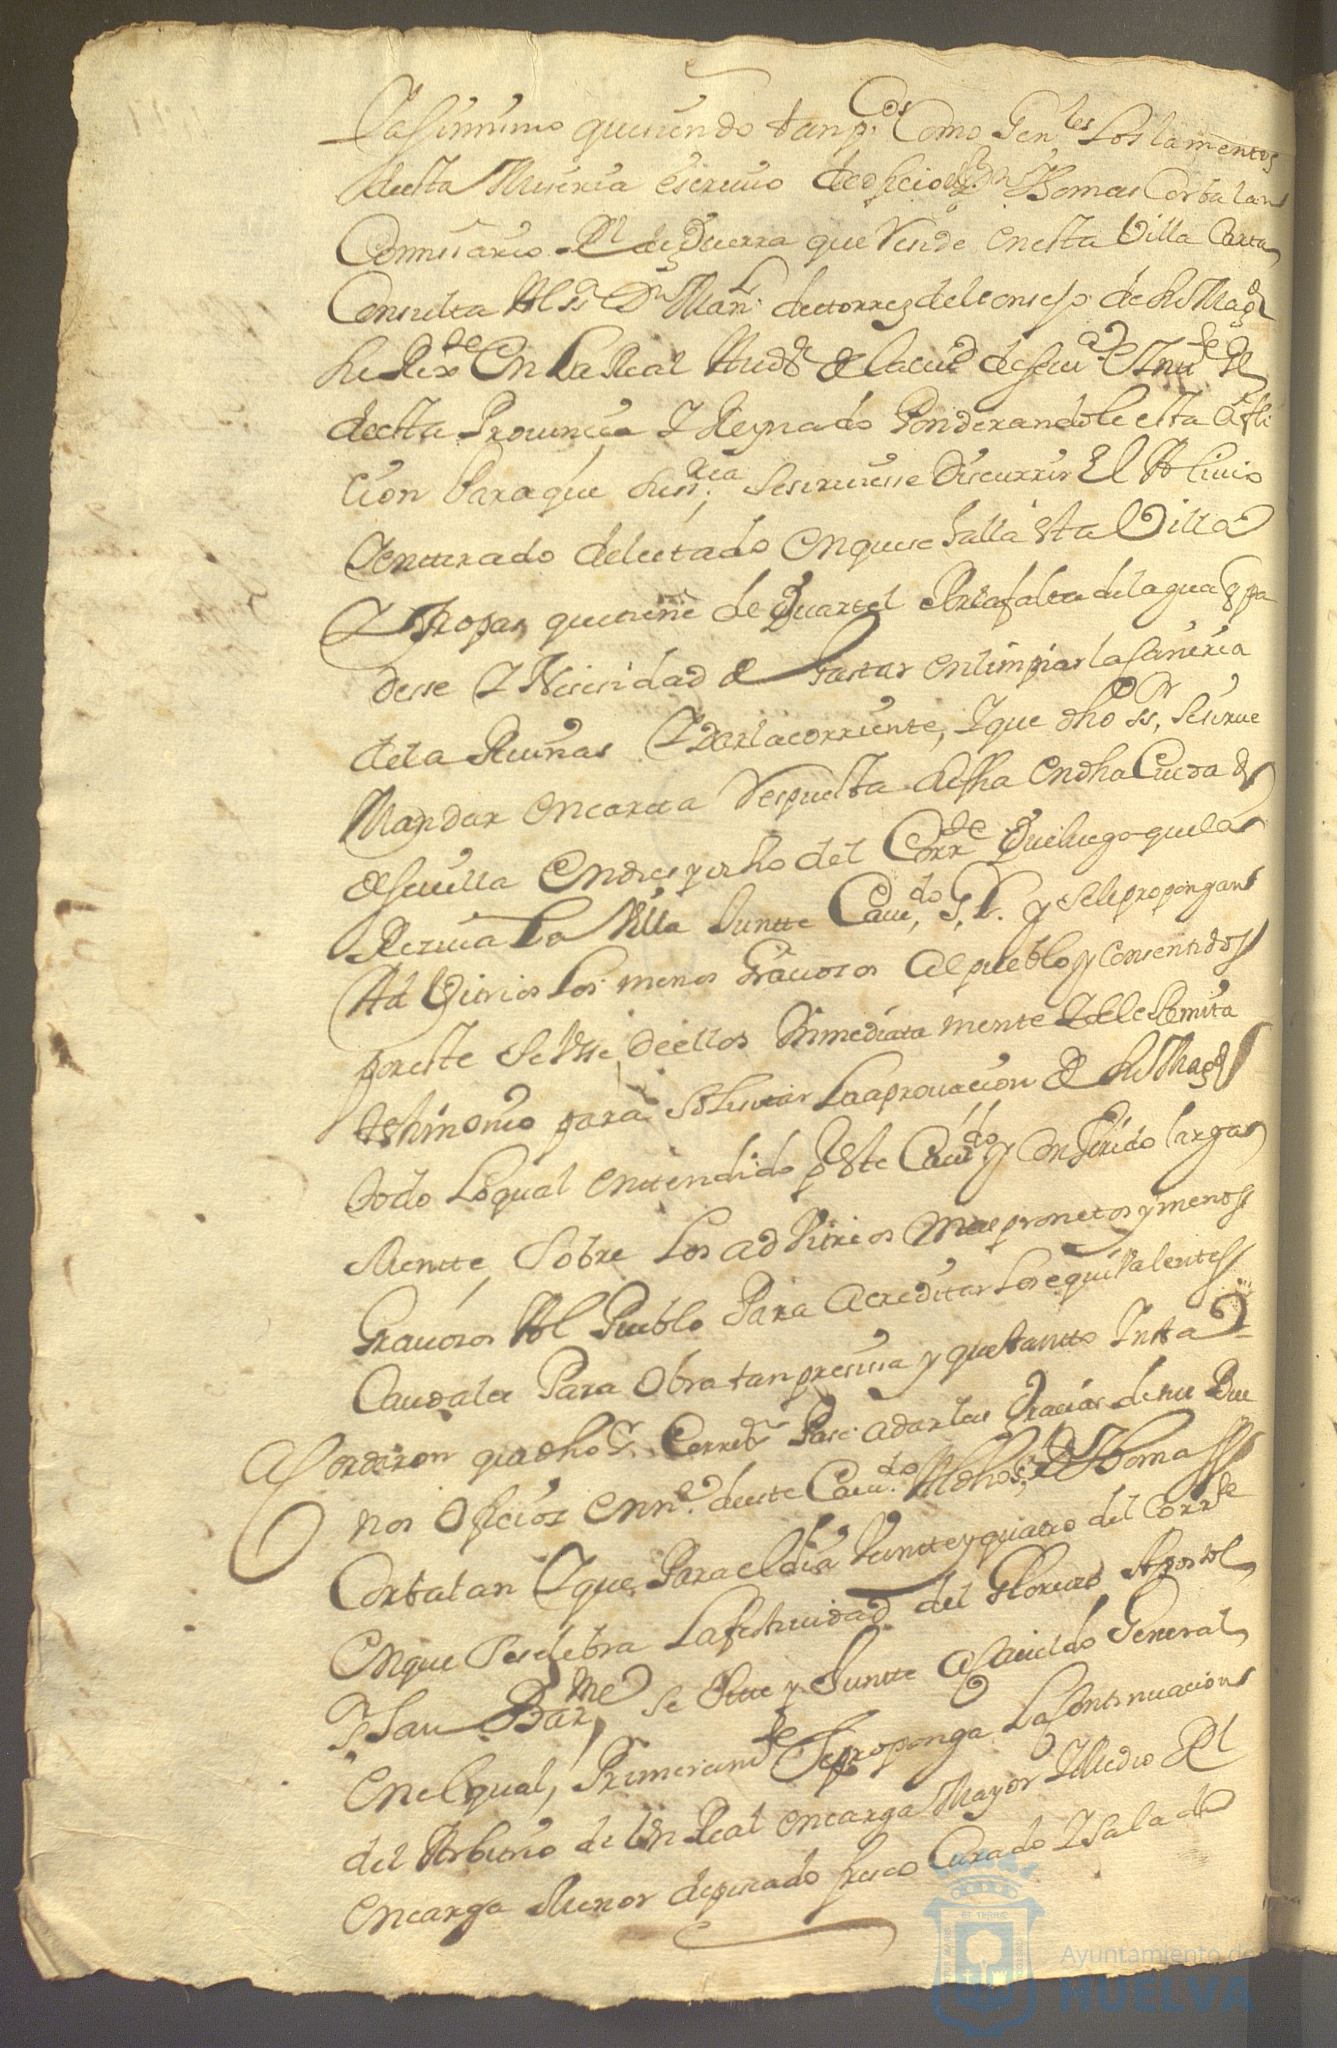 Y asimismo queriendo tan p.cos Como Gen.les Los lamentos
de esta Miseria escriuio de oficio el s.r D.n Thomas Corbalan
Comissario R.l de Guerra que reside en esta Villa Carta
Consulta Al s.r D.n Man.l de torres del consejo de Su Mag.d
Su Rex.te En La Real Aud.a de la ciu.d de seu.a e Yntt.e Gl
de esta Prouincia Y Reynado Ponderandole esta Afli
cion Para que su ss.ria se siruiesse Discurrir El Aliuio
Y enterado del estado en que se halla esta Villa
Y tropas que tiene de Quartel Por la falta del agua q pa
desse Y Nesesidad de gastar en limpiar la cañeria
de la Ruinas Y Dar la corriente, Y que dho ss.or, se sirue
Mandar en carta respuesta de fha en dha Ciudad
de seuilla en dies y ocho del Corr.te Que luego que la
Reciua La Villa Juntte Cauu.do G.l y se le propongan
Aduitrios Los menos Grauosos al pueblo y consentidos
por este se Vsse de ellos Ynmediata mente Y se le Remita
testimonio para solisitar La aprouacion de Su Mag.d
todo Lo qual entendido p.r este Cauu.do y conferido larga
Mentte, sobre Los aduitrios mas promtos y menos
Grauosos Al Pueblo Para acreditar Los equibalentes
Caudales Para Obra tan presissa y que tantto Ynsta
Acordaron que dho s.r Corre.or Passe a dar las Gracias de sus Bue
nos Oficios en n.e de este Cauu.do Al dho s.r D.n Thomas
Corbalan Y que Para el dia Veintte y quatro del Corr.te
en que se selebra La festiuidad del Glorioso Apostol
S.r San Bar.me se Citte y Juntte a Cauildo General
en el qual, Primeram.te se proponga La Continuacion
del Arbitrio de Vn Real en carga Mayor Y Medio R.l
en carga Menor de pescado fresco Curado Y Salado
Ayuntamiento de
HUELVA